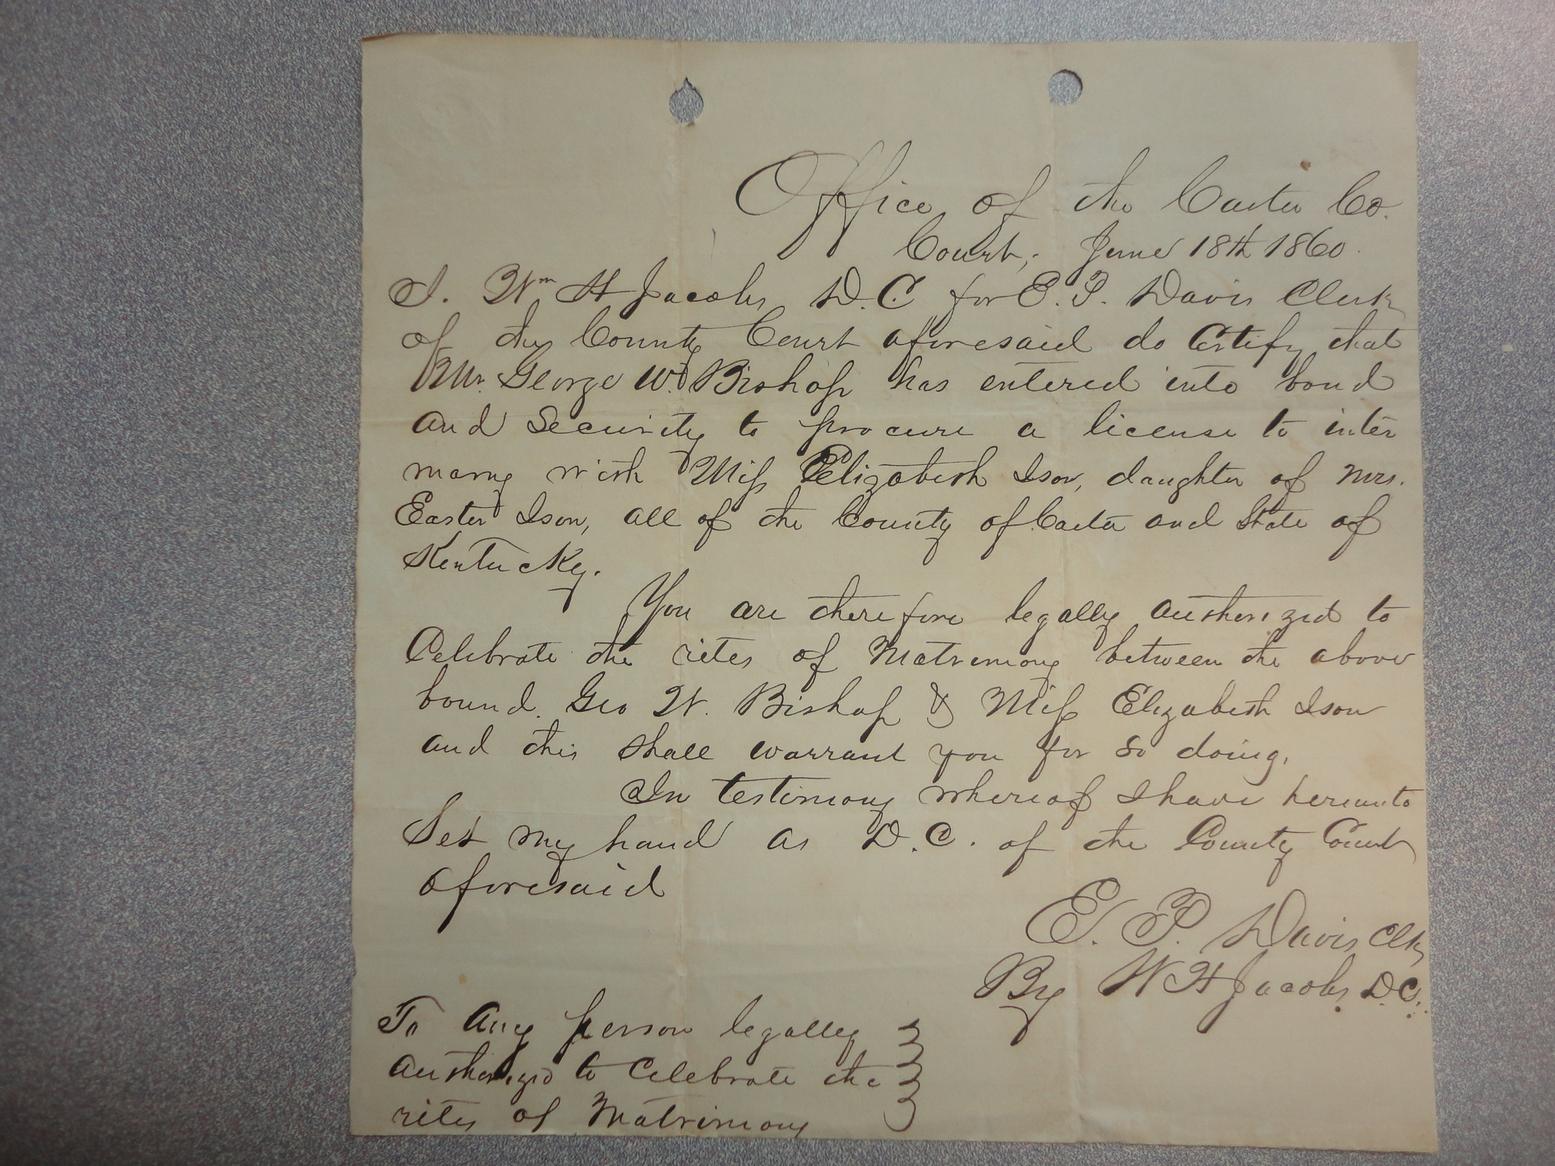 Office of the Carter Co.
Court, June 18th 1860.
I. Wm H Jacobs, D.C for E. P. Davis Clerk
of the County Court aforesaid do certify that
Mr. George W. Bishop has entered into bond
and security to procure a license to inter
marry with Miss Elizabeth Ison, daughter of Mrs.
Easter Ison, all of the County of Carter and State of
Kentucky.
You are therefore legally authorized to
Celebrate the rites of Matrimony between the above
bound. Geo W. Bishop & Miss Elizabeth Ison
and this shall warrant you for so doing.
In testimony whereof I have hereunto
Set my hand as D.C. of the County Court
aforesaid
E. P. Davis Clk
By W H Jacobs. D.C.
To Any person legally
authorized to Celebrate the
rites of Matrimony